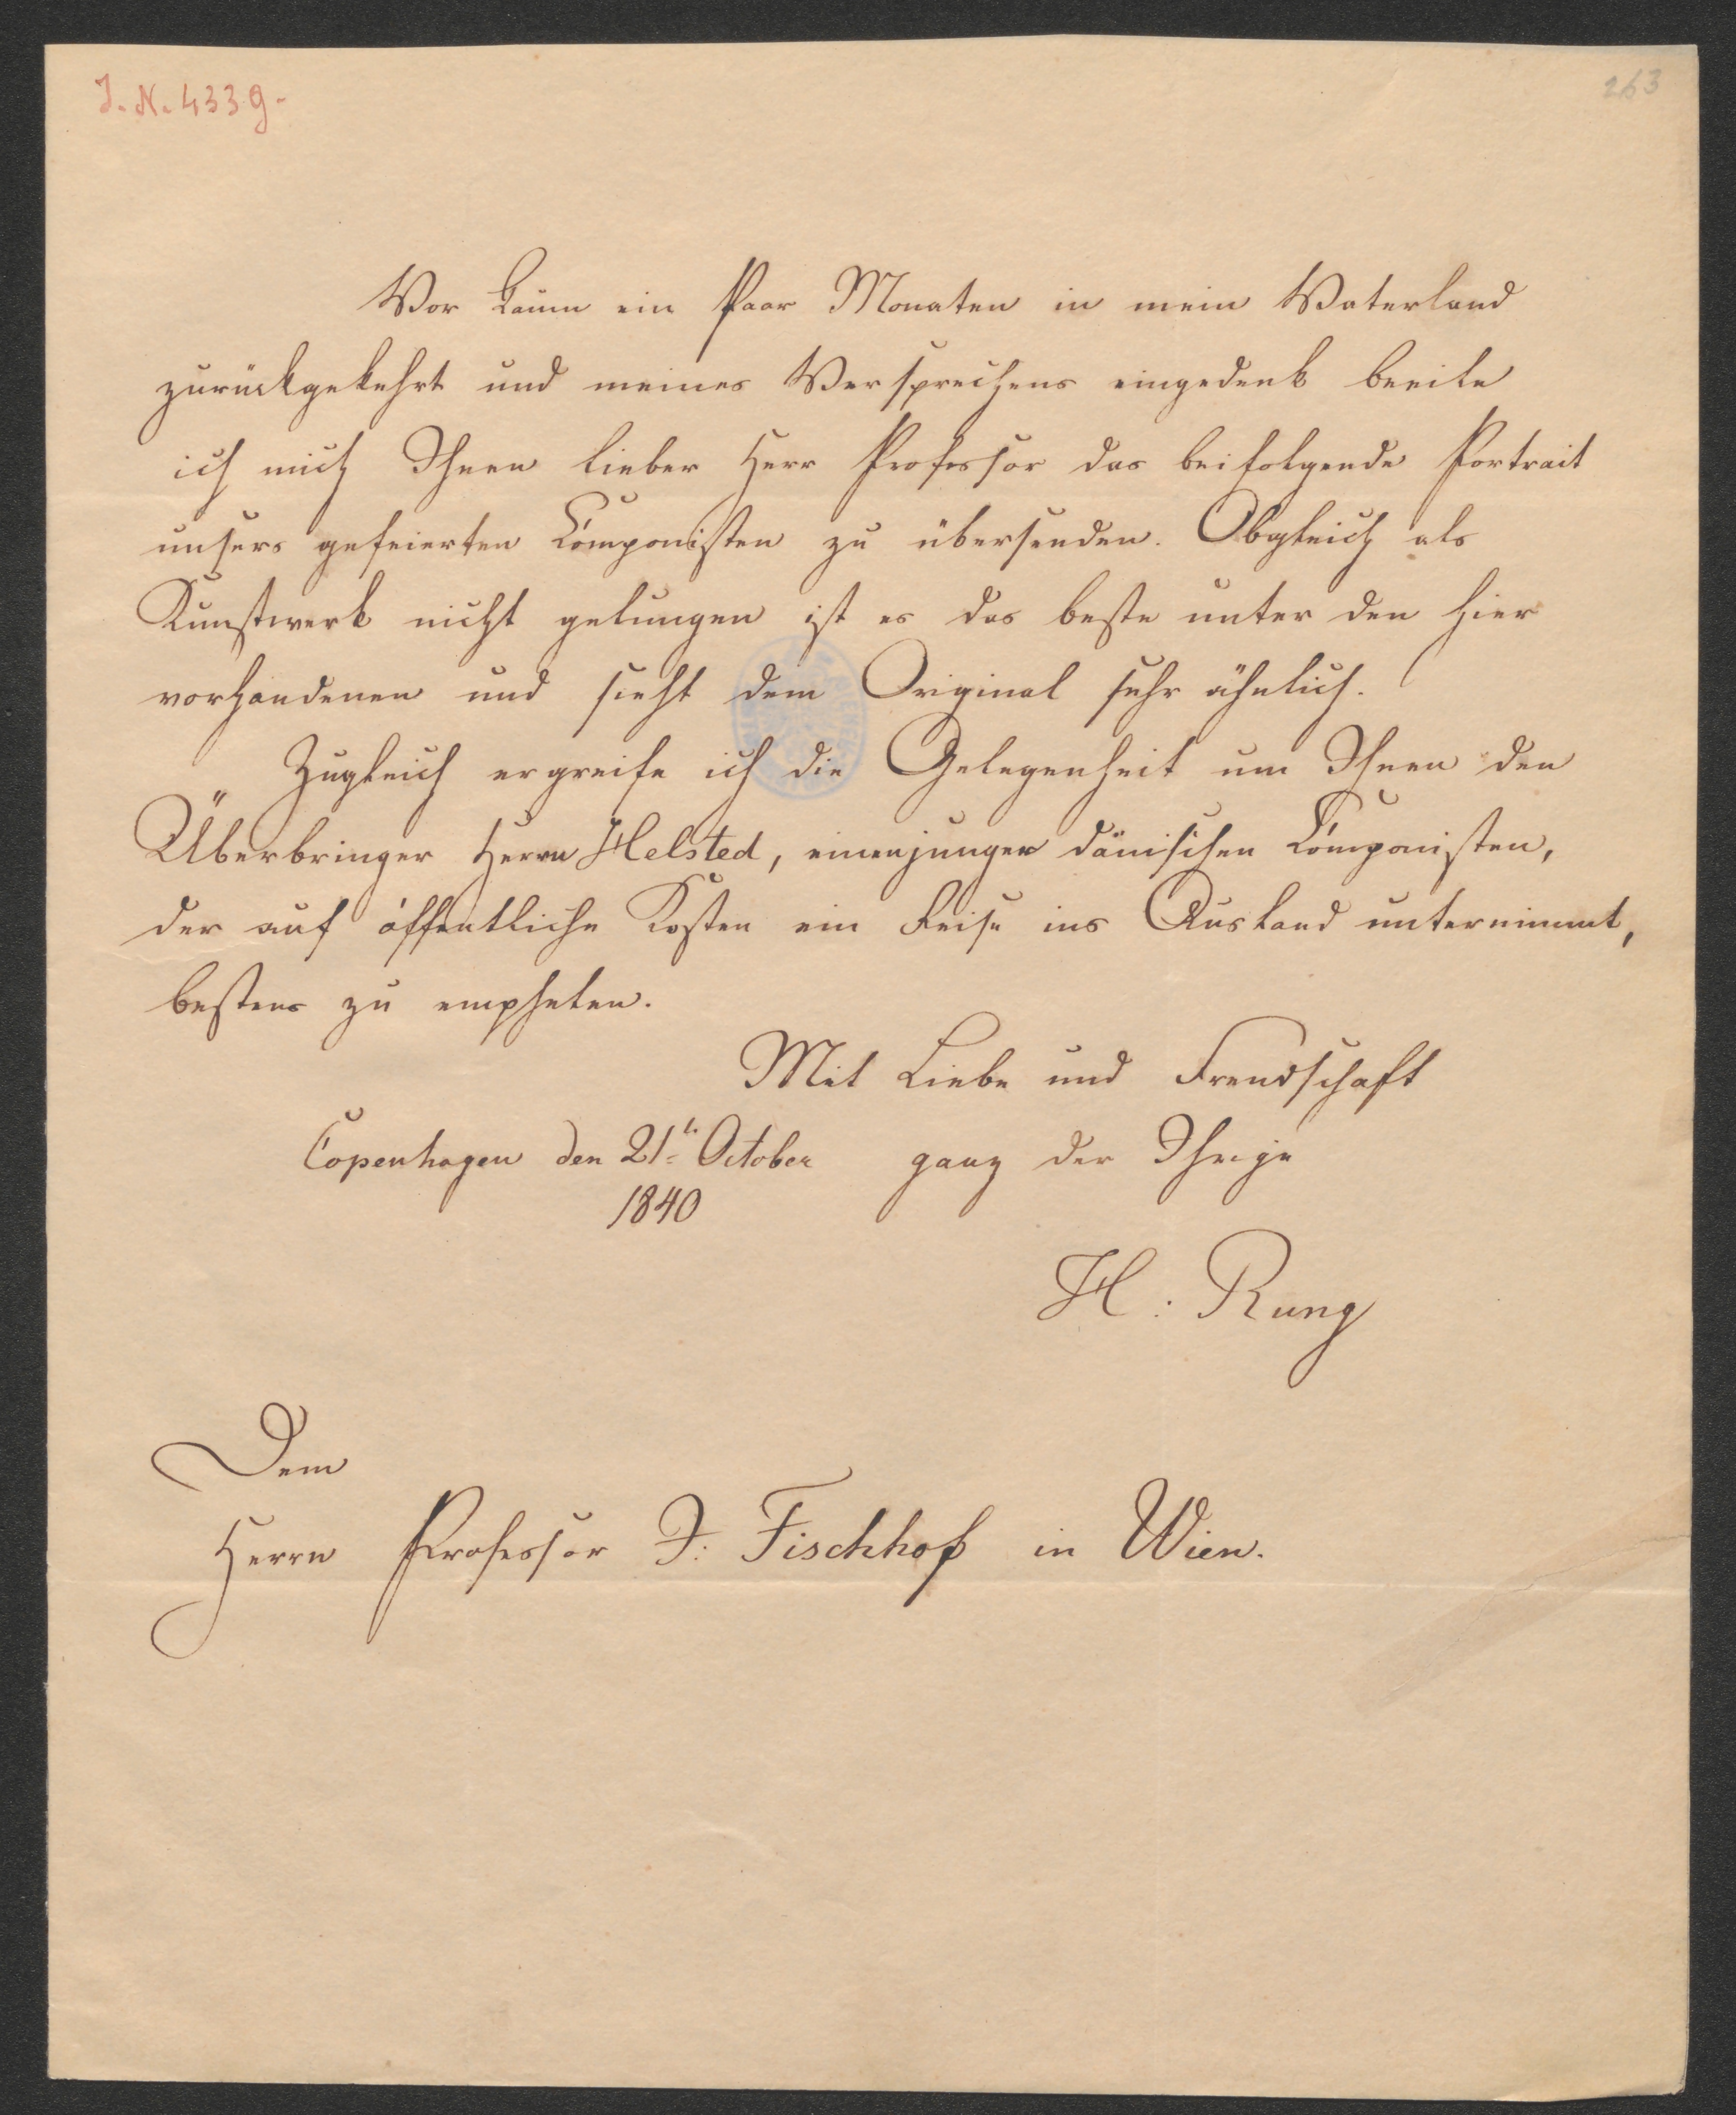 J. N. 4339.
263
Vor kaum ein Paar Monaten in mein Vaterland
zurückgekehrt und meines Versprechens eingedenk beeile
ich mich Ihnen lieber Herr Professor das beifolgende Portrait
unsers gefeierten Componisten zu übersenden. Obgleich als
Kunstwerk nicht gelungen ist es das beste unter den hier
vorhandenen und sieht dem Original sehr ähnlich.
Zugleich ergreife ich die Gelegenheit um Ihnen den
Überbringer Herrn Helsted, einen jungen dänischen Componisten,
der auf öffentliche Kosten ein Reise ins Ausland unternimmt,
bestens zu emphelen.
Mit Liebe und Freudschaft
Copenhagen den 21t October ganz der Ihrige
1840
H: Rung
Dem
Herrn Professor J: Fischhof in Wien.